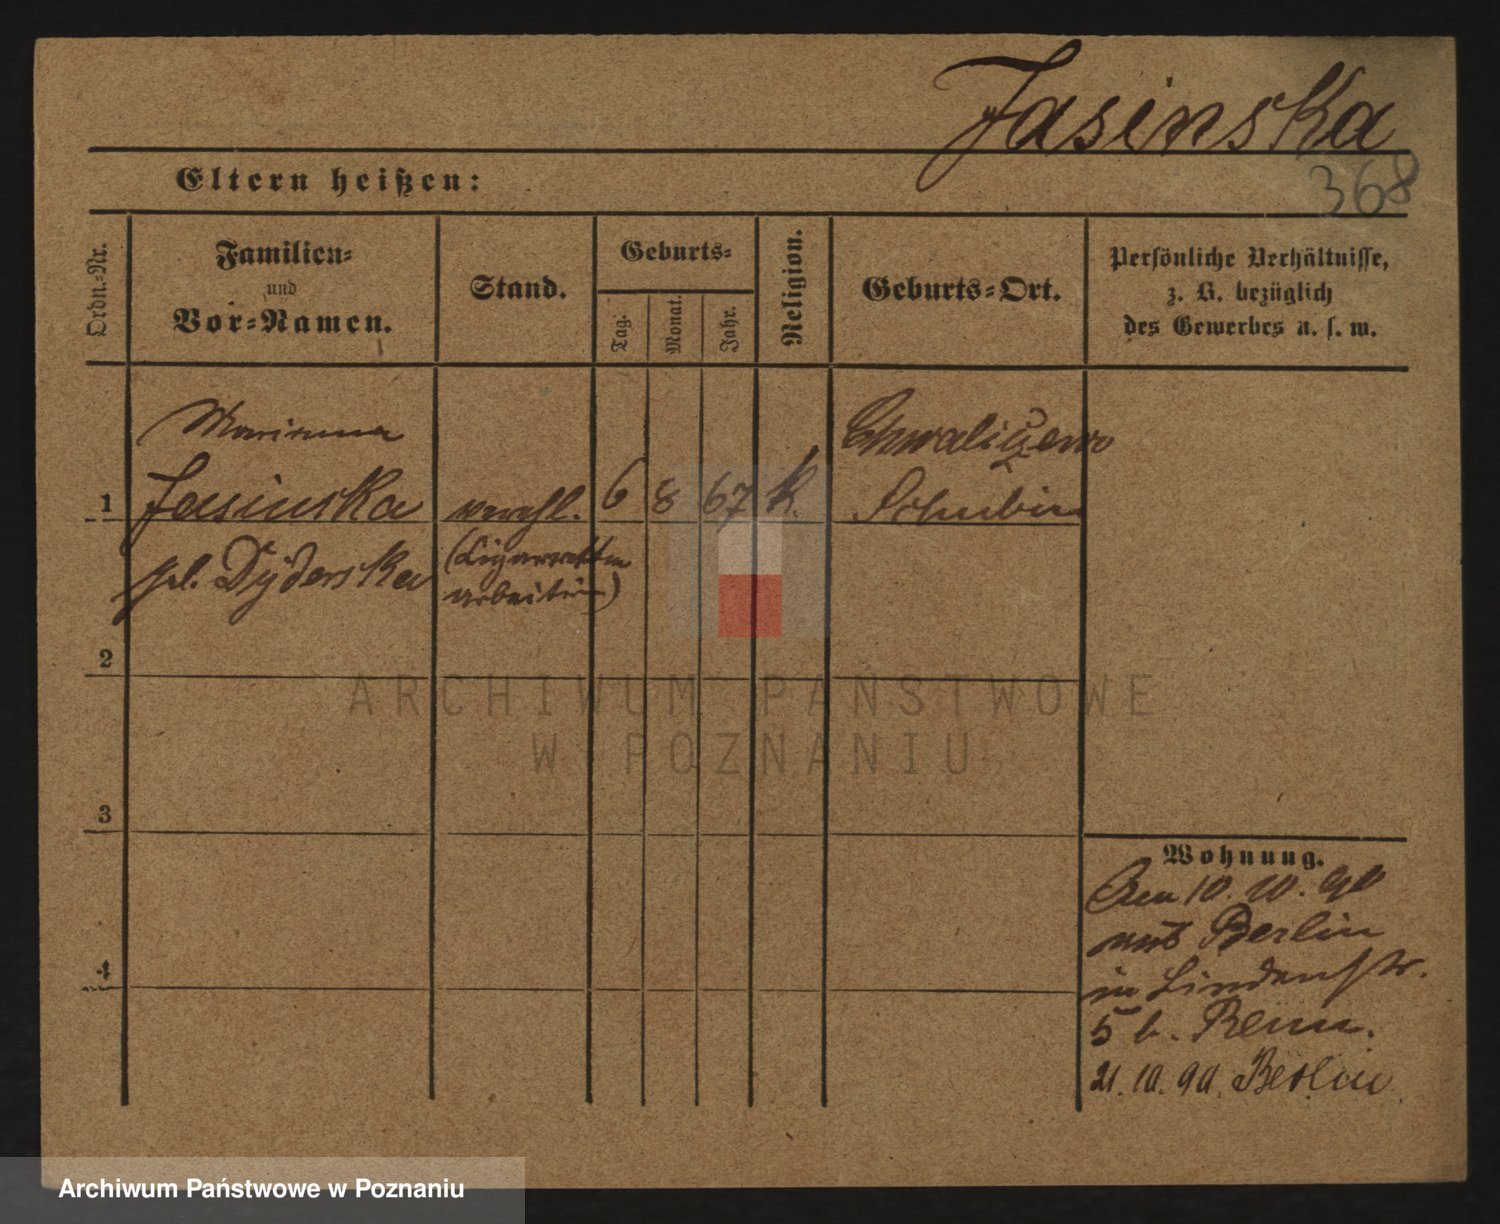 Jasinska
368
Eltern heißen:
Ordn.-Nr.
Familien-
und
Vor-Namen.
Stand.
Geburts-
Tag.
Monat.
Jahr.
Religion.
Geburts-Ort.
Persönliche Verhältnisse,
z. B. bezüglich
des Gewerbes u. s. w.
Marianna
Chwaliszewo
1 Jasinska verehl. 6 8 67 k. Schubin
Dyderska (Cigaretten
arbeiterin)
2
ARCHIWUM PAŃSTWOWE
W POZNANIU
3
Wohnung.
Den 10. 10. 90
aus Berlin
4
in Lindenstr.
5 b.
21. 10. 90. Berlin
Archiwum Państwowe w Poznaniu